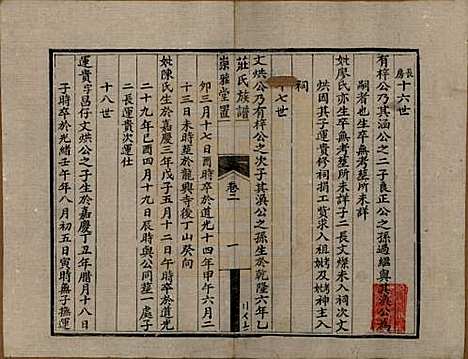 長房
十六世
有梓公乃其涵公之二子良正公之孫過繼與其滇公為
嗣者也生卒無考塟所未詳
妣廖氏亦生卒無考塟所未詳子二長文燦未入祠次文
烘因其子運貴修祠捐工貲求入祖妣及妣神主入
祠
十七世
文烘公乃有梓公之次子其滇公之孫生於乾隆六年乙
莊氏族譜 卷二 一
崇雅堂置
卯三月十七日酉時卒於道光十四年甲午六月二
十三日未時塟於龍興寺後丁山癸向
妣陳氏生於嘉慶三年戊子五月十二日午時卒於道光
二十九年己酉四月十九日辰時與公同塟一處子
二長運貴次運仕
十八世
運貴字昌仔文烘公之子生於嘉慶丁丑年腊月十八日
子時卒於光緒壬午年八月初五日寅時無子撫運